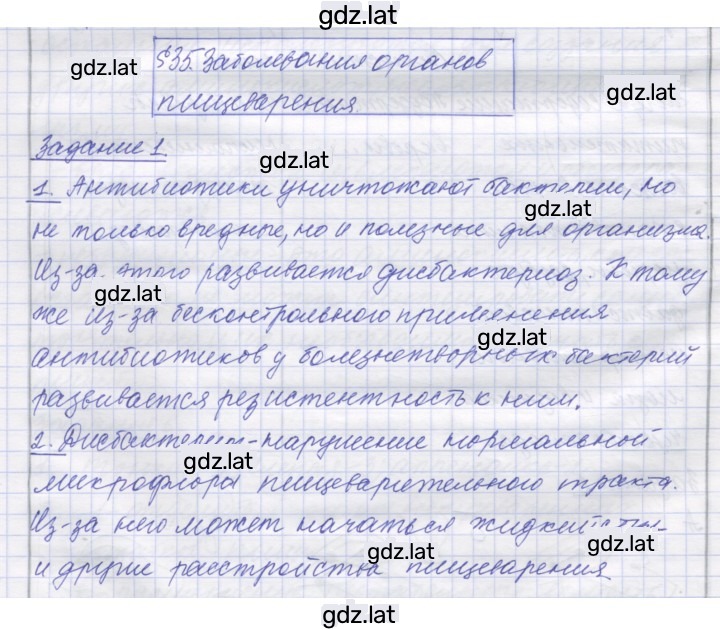 gdz.lat
§35. Заболевания органов
gdz.lat
пищеварения
gdz.lat
Задание 1
gdz.lat
1. Антибиотики уничтожают бактерии, но
gdz.lat
не только вредные, но и полезные для организма.
Из-за этого развивается дисбактериоз. К тому
gdz.lat
же из-за бесконтрольного применения
gdz.lat
антибиотиков у болезнетворных бактерий
развивается резистентность к ним.
2. - нарушение нормальной
gdz.lat
микрофлоры пищеварительного тракта.
Из-за него может начаться жидкий
gdz.lat
gdz.lat
и другие расстройства пищеварения
gdz.lat